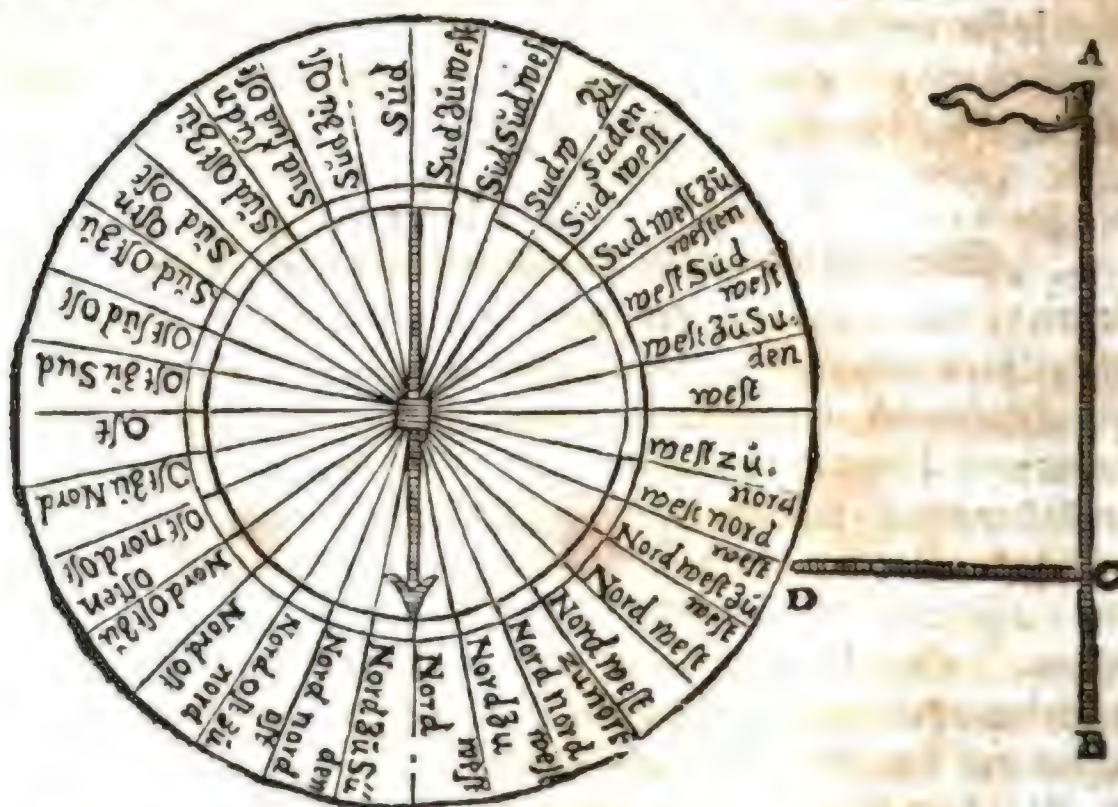 Süd
Sud zů west
Süd Süd west
Sudw zů
suden
Süd west
Sud west zů
westen
west Süd
west
west zů Su.
den
west
west zů.
nord
west nord
west
Nord west zů
west
Nord west
Nord west
zů nort
Nord nord
west
Nord zů
west
Nord
Nord zů Sü
den
Nord nord
ost
Nord ost zů
nord
Nord ost
Nord Ost zů
osten
Ost nord ost
Ost zů Nord
Ost
Ost zů Sud
Ost süd ost
Süd Ost zů
ostn
Süd ost
Süd Ost zů
sudn
Sud süd ost
Süd zů Ost
A
D
C
B